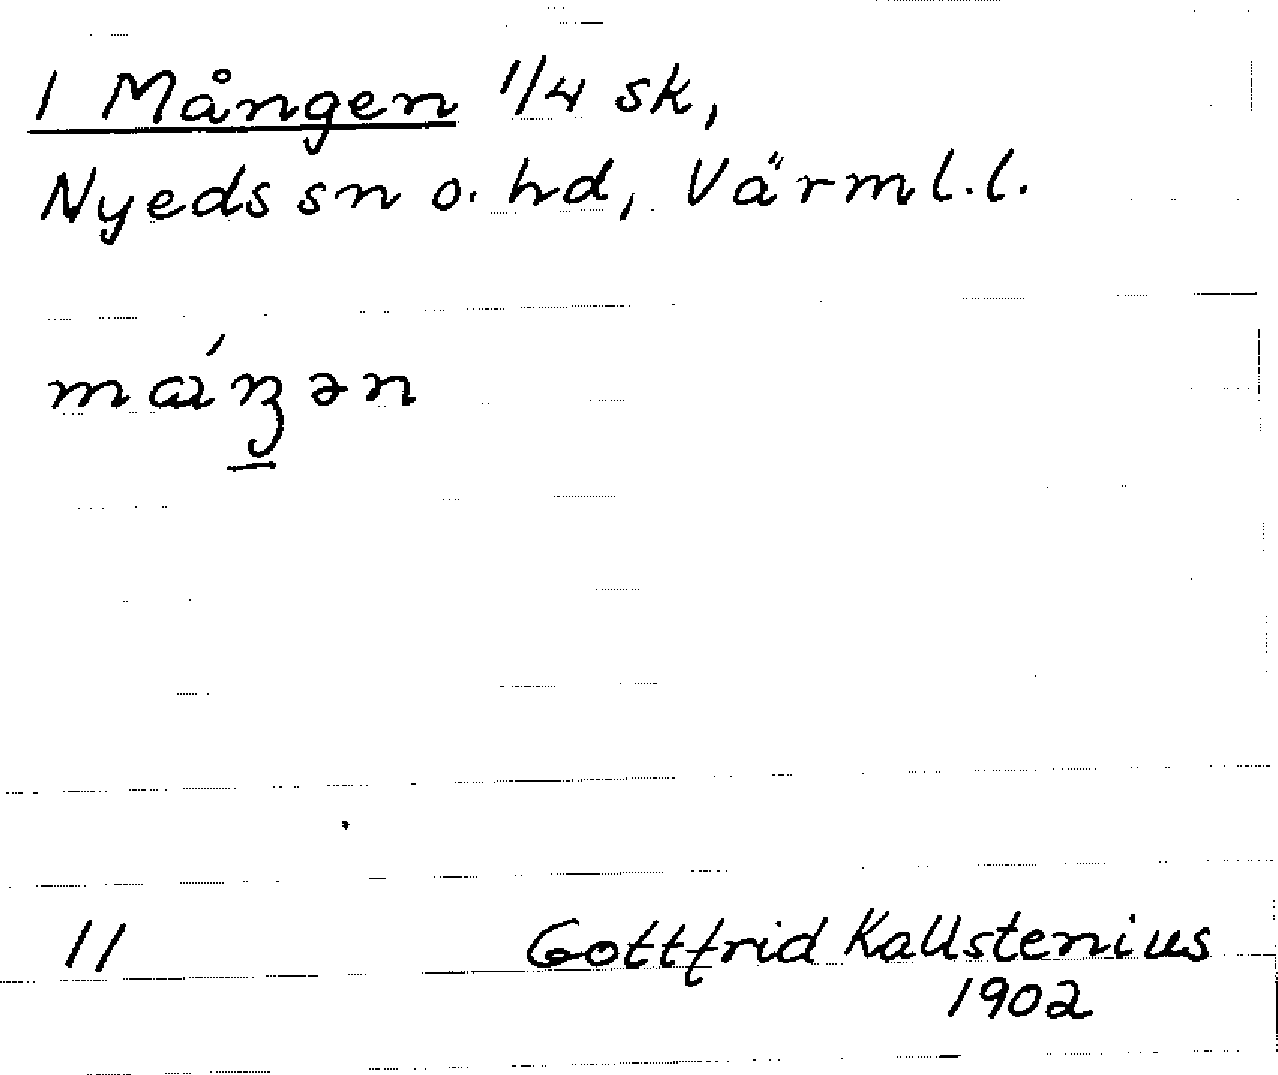 1 Mången 1/4 sk,
Nyeds sn o. hd, Värml. l.
11
Gottfrid Kallstenius
1902